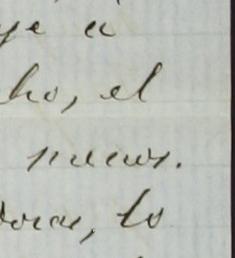 ye a
ho, el
nuevos.
doras, lo